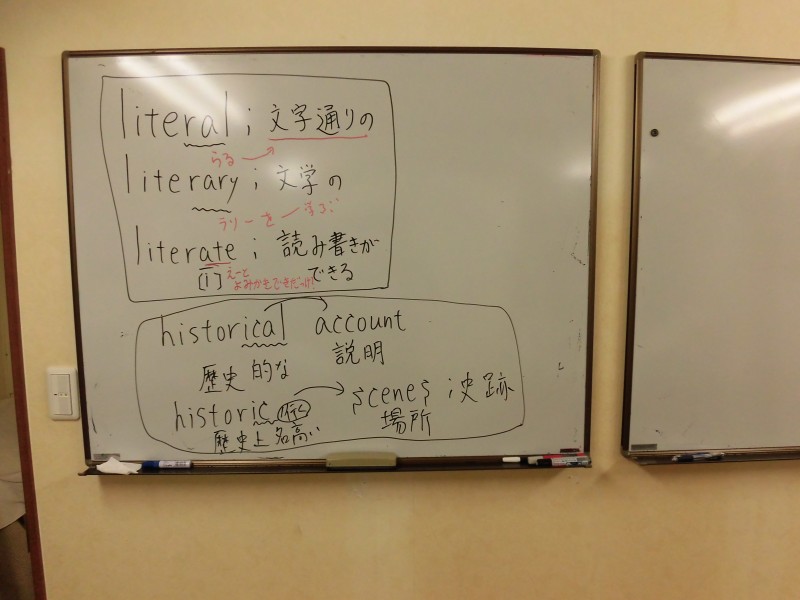 literal ; 文字通りの
らる
literary ; 文学の
ラリーを
literate ; 読み書きが
できる
[i] えーと
historical account
歴史的な 説明
historic 行く scenes ; 史跡
歴史上名高い 場所